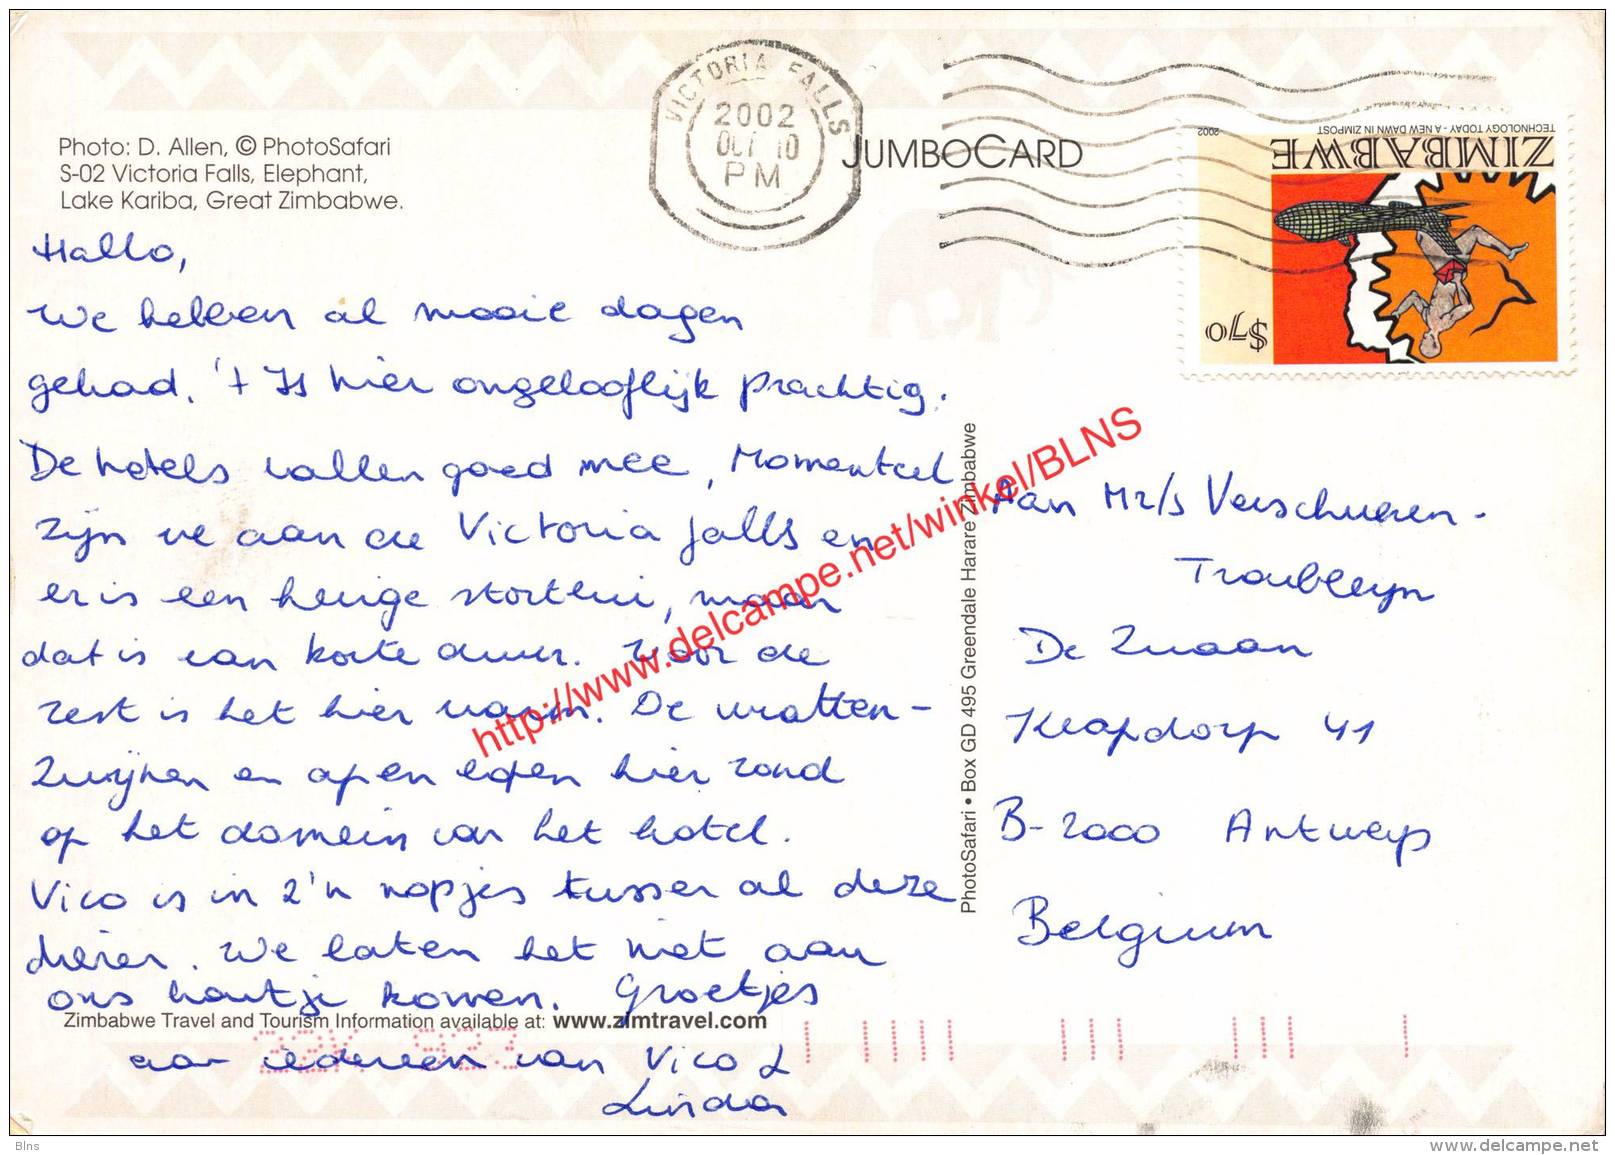 Photo: D. Allen, © PhotoSafari
S-02 Victoria Falls, Elephant,
Lake Kariba, Great Zimbabwe.
VICTORIA FALLS
2002
OCT 10
PM
JUMBOCARD
TECHNOLOGY TODAY - A NEW DAWN IN ZIMPOST
2002
ZIMBABWE
$70
Hallo,
We hebben al mooie dagen
gehad. 't Is hier ongelooflijk prachtig.
De hotels vallen goed mee, Momenteel
zijn we aan de Victoria falls en
er is een hevige stortbui, maar
dat is van korte duur. Voor de
rest is het hier warm. De wratten-
zwijnen en apen lopen hier rond
op het domein van het hotel.
Vico is in z'n nopjes tussen al deze
dieren. We laten het niet aan
ons hartje komen. Groetjes
aan iedereen van Vico &
Linda
Zimbabwe Travel and Tourism Information available at: www.zimtravel.com
PhotoSafari • Box GD 495 Greendale Harare Zimbabwe
Aan Mr/s Verschueren-
Troubleyn
De Zwaan
Klapdorp 41
B-2000 Antwerp
Belgium
http://www.delcampe.net/winkel/BLNS
Blns
www.delcampe.net